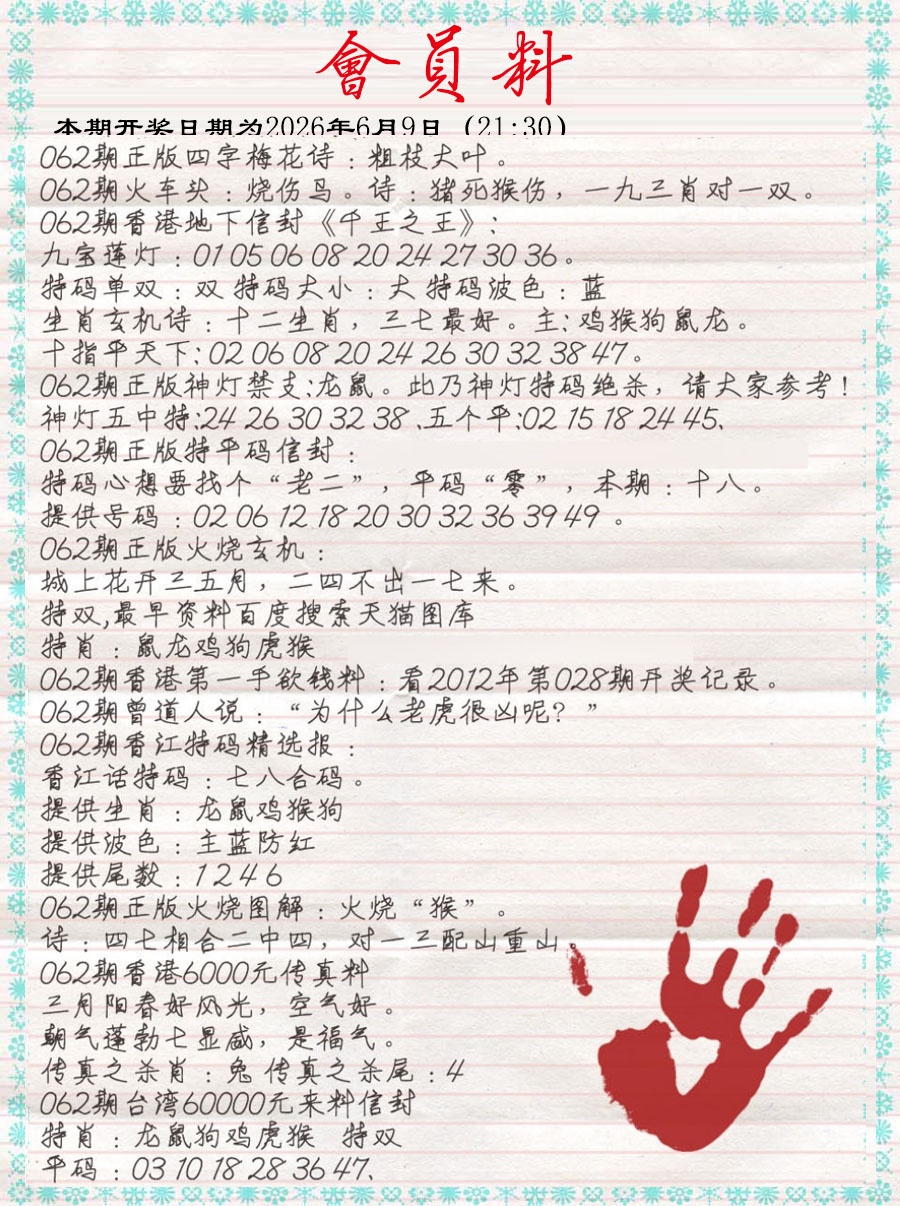 會員料
本期开奖日期为2026年6月9日（21:30）
062期正版四字梅花诗：粗枝大叶。
062期火车头：烧伤鸟。诗：猪死猴伤，一九三肖对一双。
062期香港地下信封《千王之王》:
九宝莲灯：01 05 06 08 20 24 27 30 36。
特码单双：双 特码大小：大 特码波色：蓝
生肖玄机诗：十二生肖，三七最好。主: 鸡猴狗鼠龙。
十指平天下: 02 06 08 20 24 26 30 32 38 47。
062期正版神灯禁支:龙鼠。此乃神灯特码绝杀，请大家参考！
神灯五中特:24 26 30 32 38 、五个平:02 15 18 24 45、
062期正版特平码信封：
特码心想要找个“老二”，平码“零”，本期：十八。
提供号码：02 06 12 18 20 30 32 36 39 49 。
062期正版火烧玄机：
城上花开三五月，二四不出一七来。
特双,最早资料百度搜索天猫图库
特肖：鼠龙鸡狗虎猴
062期香港第一手欲钱料：看2012年第028期开奖记录。
062期曾道人说：“为什么老虎很凶呢？”
062期香江特码精选报：
香江话特码：七八合码。
提供生肖：龙鼠鸡猴狗
提供波色：主蓝防红
提供尾数：1 2 4 6
062期正版火烧图解：火烧“猴”。
诗：四七相合二中四，对一三配山重山。
062期香港6000元传真料
三月阳春好风光，空气好。
朝气蓬勃七显感，是福气。
传真之杀肖：兔 传真之杀尾：4
062期台湾60000元来料信封
特肖：龙鼠狗鸡虎猴 特双
平码：03 10 18 28 36 47、